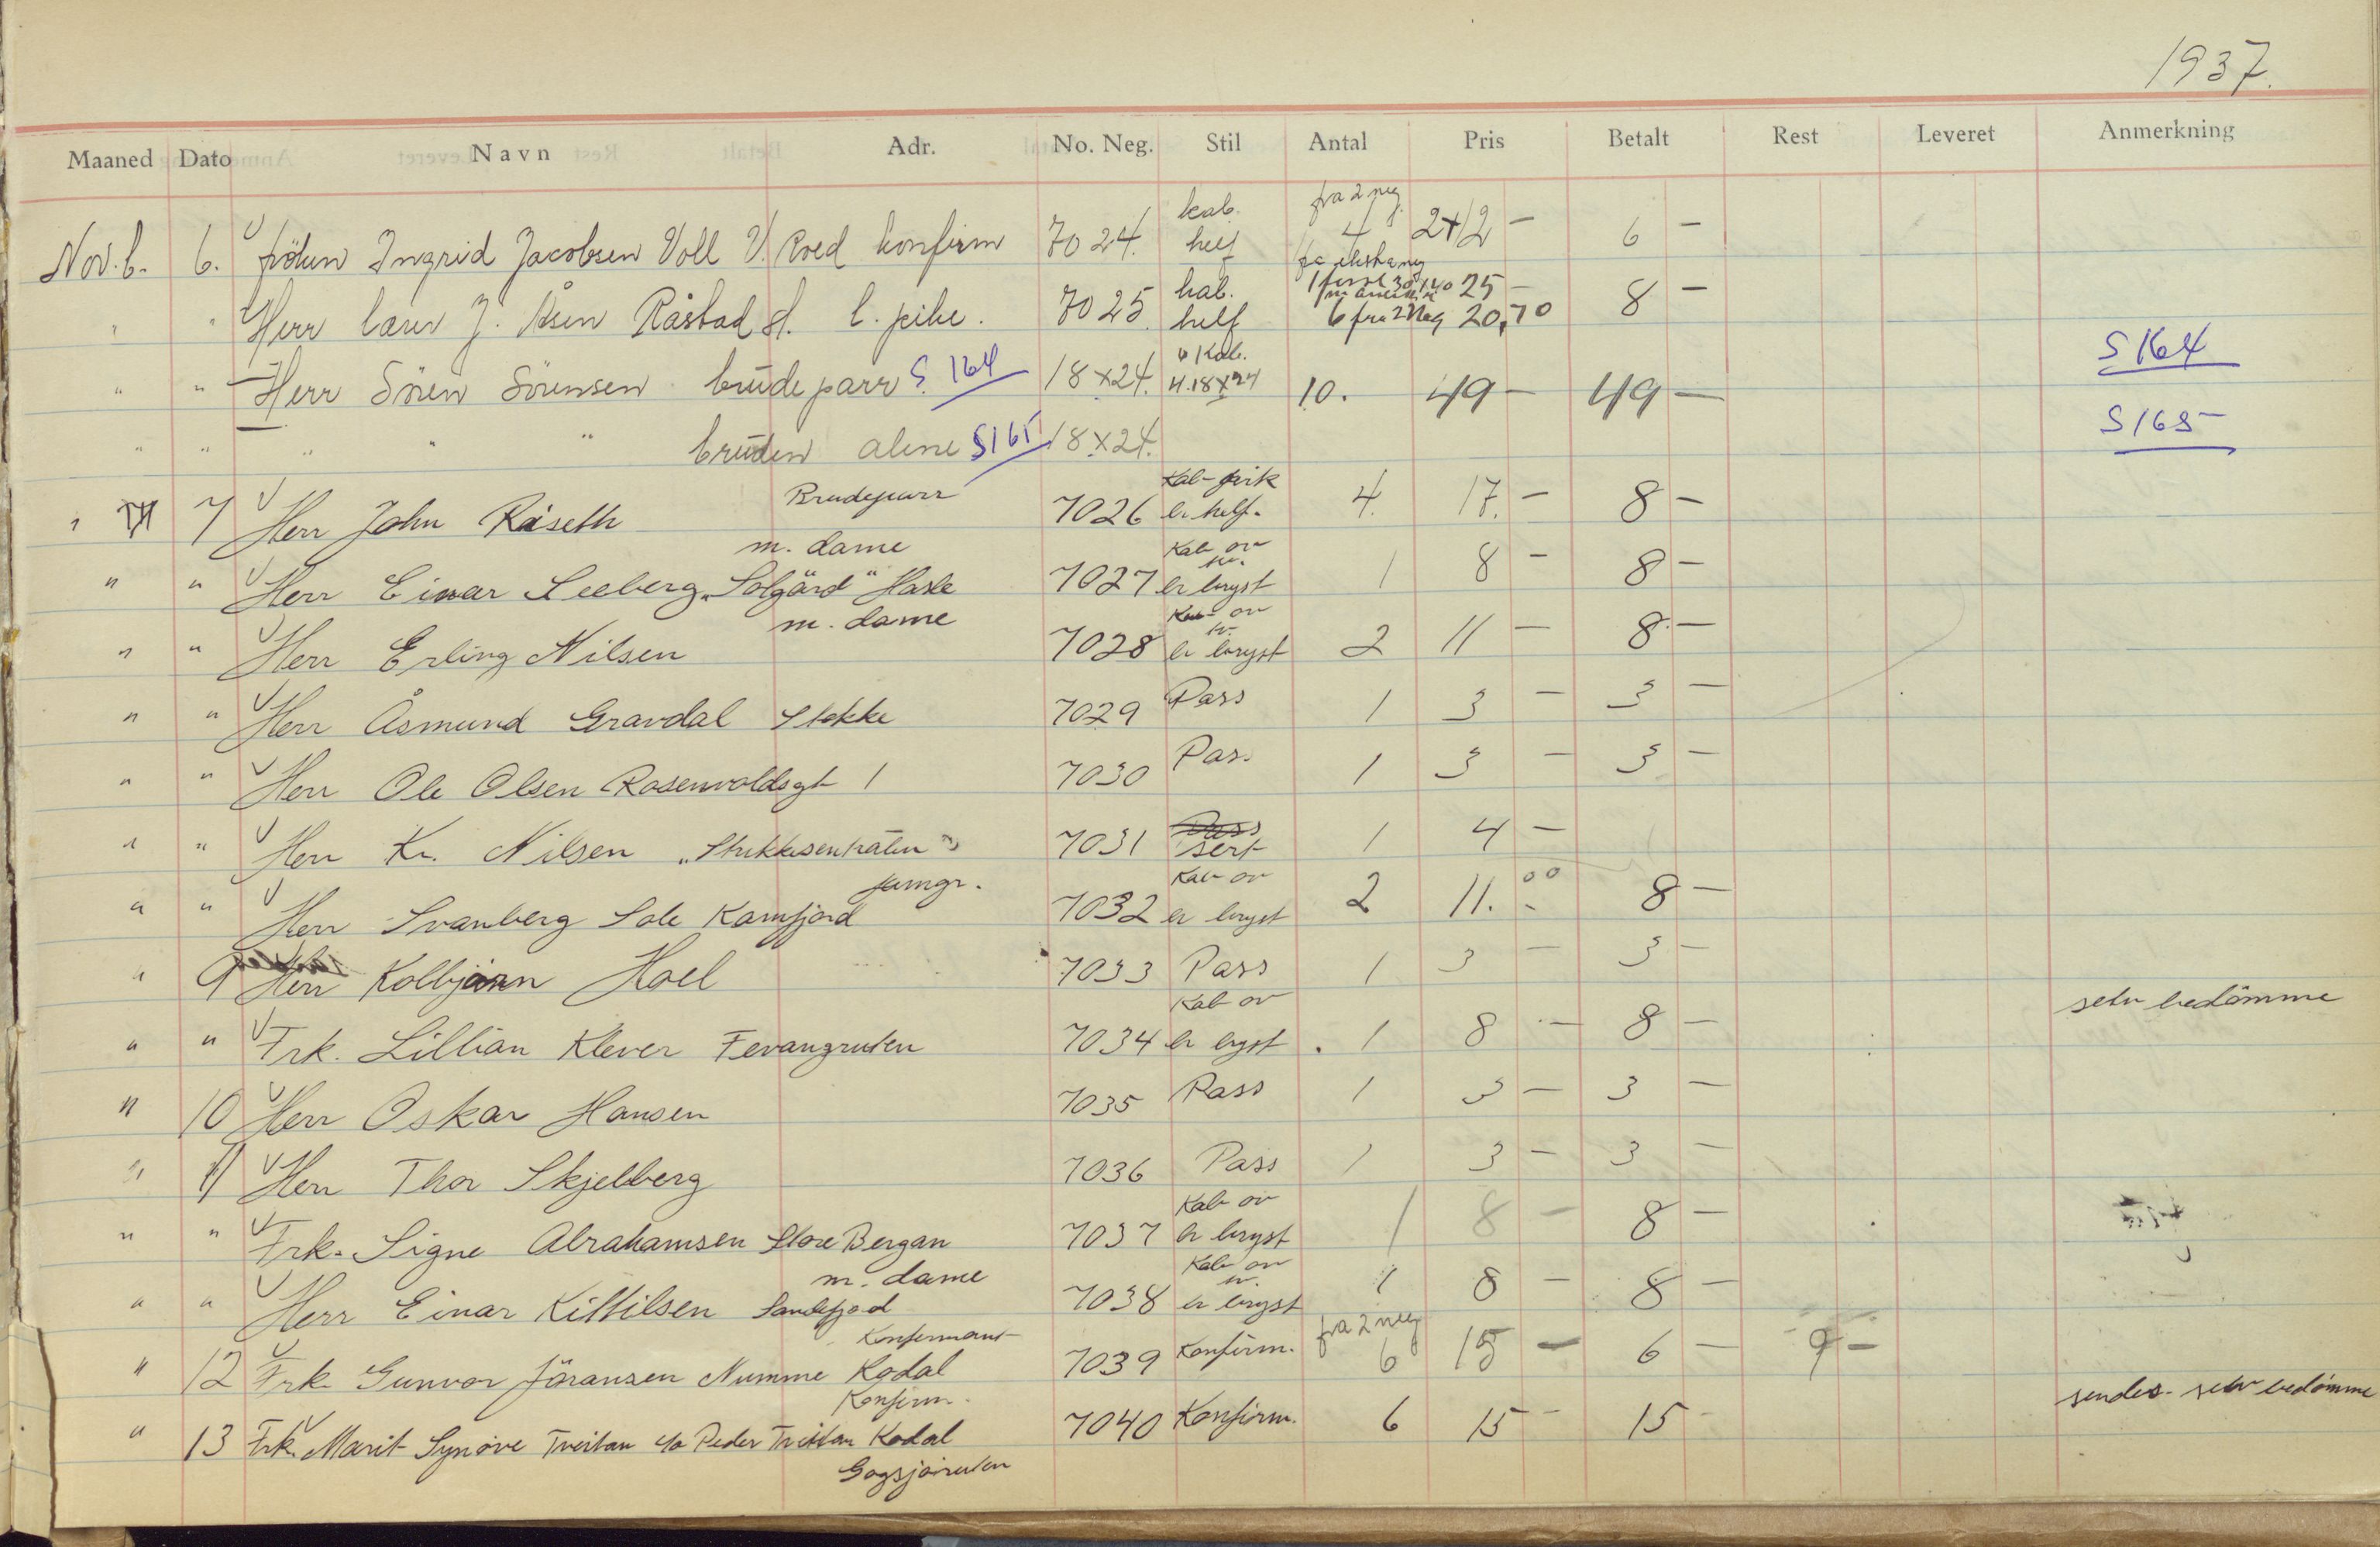 1937.
Maaned Dato Navn Adr. No. Neg. Stil Antal Pris Betalt Rest Leveret Anmerkning
kab. fra 2 neg.
Nov. 6. 6. fröken Ingrid Jacobsen Voll V. Roed konfirm 7024. helf 4 2+12 - 6 -
" " Herr lærer J. Åsen Råstad st. l. pike. 7025. kab. helf 6 fra 2 Neg 25 - 20,70 8 -
" " Herr Sören Sörensen brudeparr S. 164 18×24. 6 Kab. 4.18×24 10. 49 - 49 - S 164
" " " " bruden alene S165 18×24. S 165
Brudeparr Kab-
" 7 Herr John Råseth 7026 er helf. 4. 17. - 8 -
m. dame Kab ov
" " Herr Einar Seeberg "Solgård" Haske 7027 er bryst 1 8 - 8 -
m. dame Kab ov
" " Herr Erling Nilsen 7028 er bryst 2 11 - 8 -
" " Herr Åsmund Gravdal Stokke 7029 Pass 1 3 - 3 -
" " Herr Ole Olsen Rosenvoldsgt 1 7030 Pass 1 3 - 3 -
" " Herr Kr. Nilsen "Stokkesentralen" 7031 Pass sert 1 4 -
jamgr. Kab ov
" " Herr Svanberg Sole Kamfjord 7032 er bryst 2 11.00 8 -
" 9 Herr Kolbjørn Hoel 7033 Pass 1 3 - 3 -
Kab ov selv bedömme
" " Frk. Lillian Klever Fevangruten 7034 er bryst 1 8 - 8 -
" 10 Herr Oskar Hansen 7035 Pass 1 3 - 3 -
" 11 Herr Thor Skjelberg 7036 Pass 1 3 - 3 -
Kab ov
" " Frk. Signe Abrahamsen Store Bergan 7037 er bryst 1 8 - 8 -
m. dame Kab ov
" " Herr Einar Kittilsen Sandefjord 7038 er bryst 1 8 - 8 -
Konfermant fra 2 neg
" 12 Frk. Gunvor Jöransen Numme Kodal 7039 Konfirm. 6 15 - 6 - 9 -
Konfirm. sendes. selv bedömme
" 13 Frk. Marit Synöve Treitan c/o Peder Treitan Kodal 7040 Konfirm. 6 15 - 15 -
Gogsjöruten